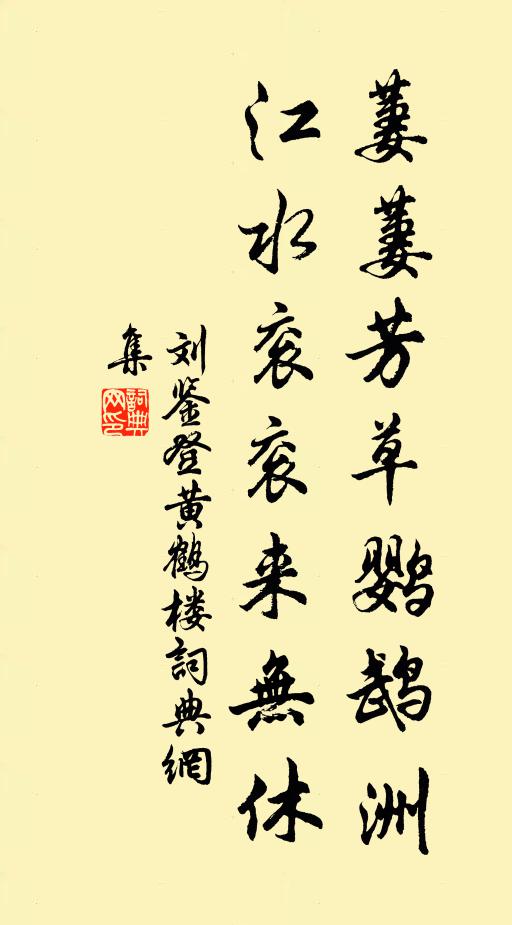 萋萋芳草鹦鹉洲
江水衮衮来無休
刘鉴登黄鹤楼詞典網
集
詞典
网印